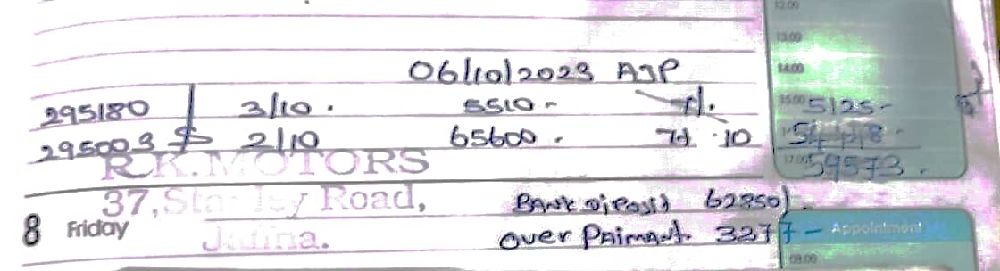 12.00
13.00
06/10/2023 AJP 14.00
295180 3/10. 5510 - 7/. 15.00 5125-
295003 2/10 65600. 7/ .10 54448.
R.K.MOTORS 17.00 59573.
37,Stanley Road, Bank Diposit 62850/.
8 Friday Jaffna. over Paimant. 3277- Appointment
08.00